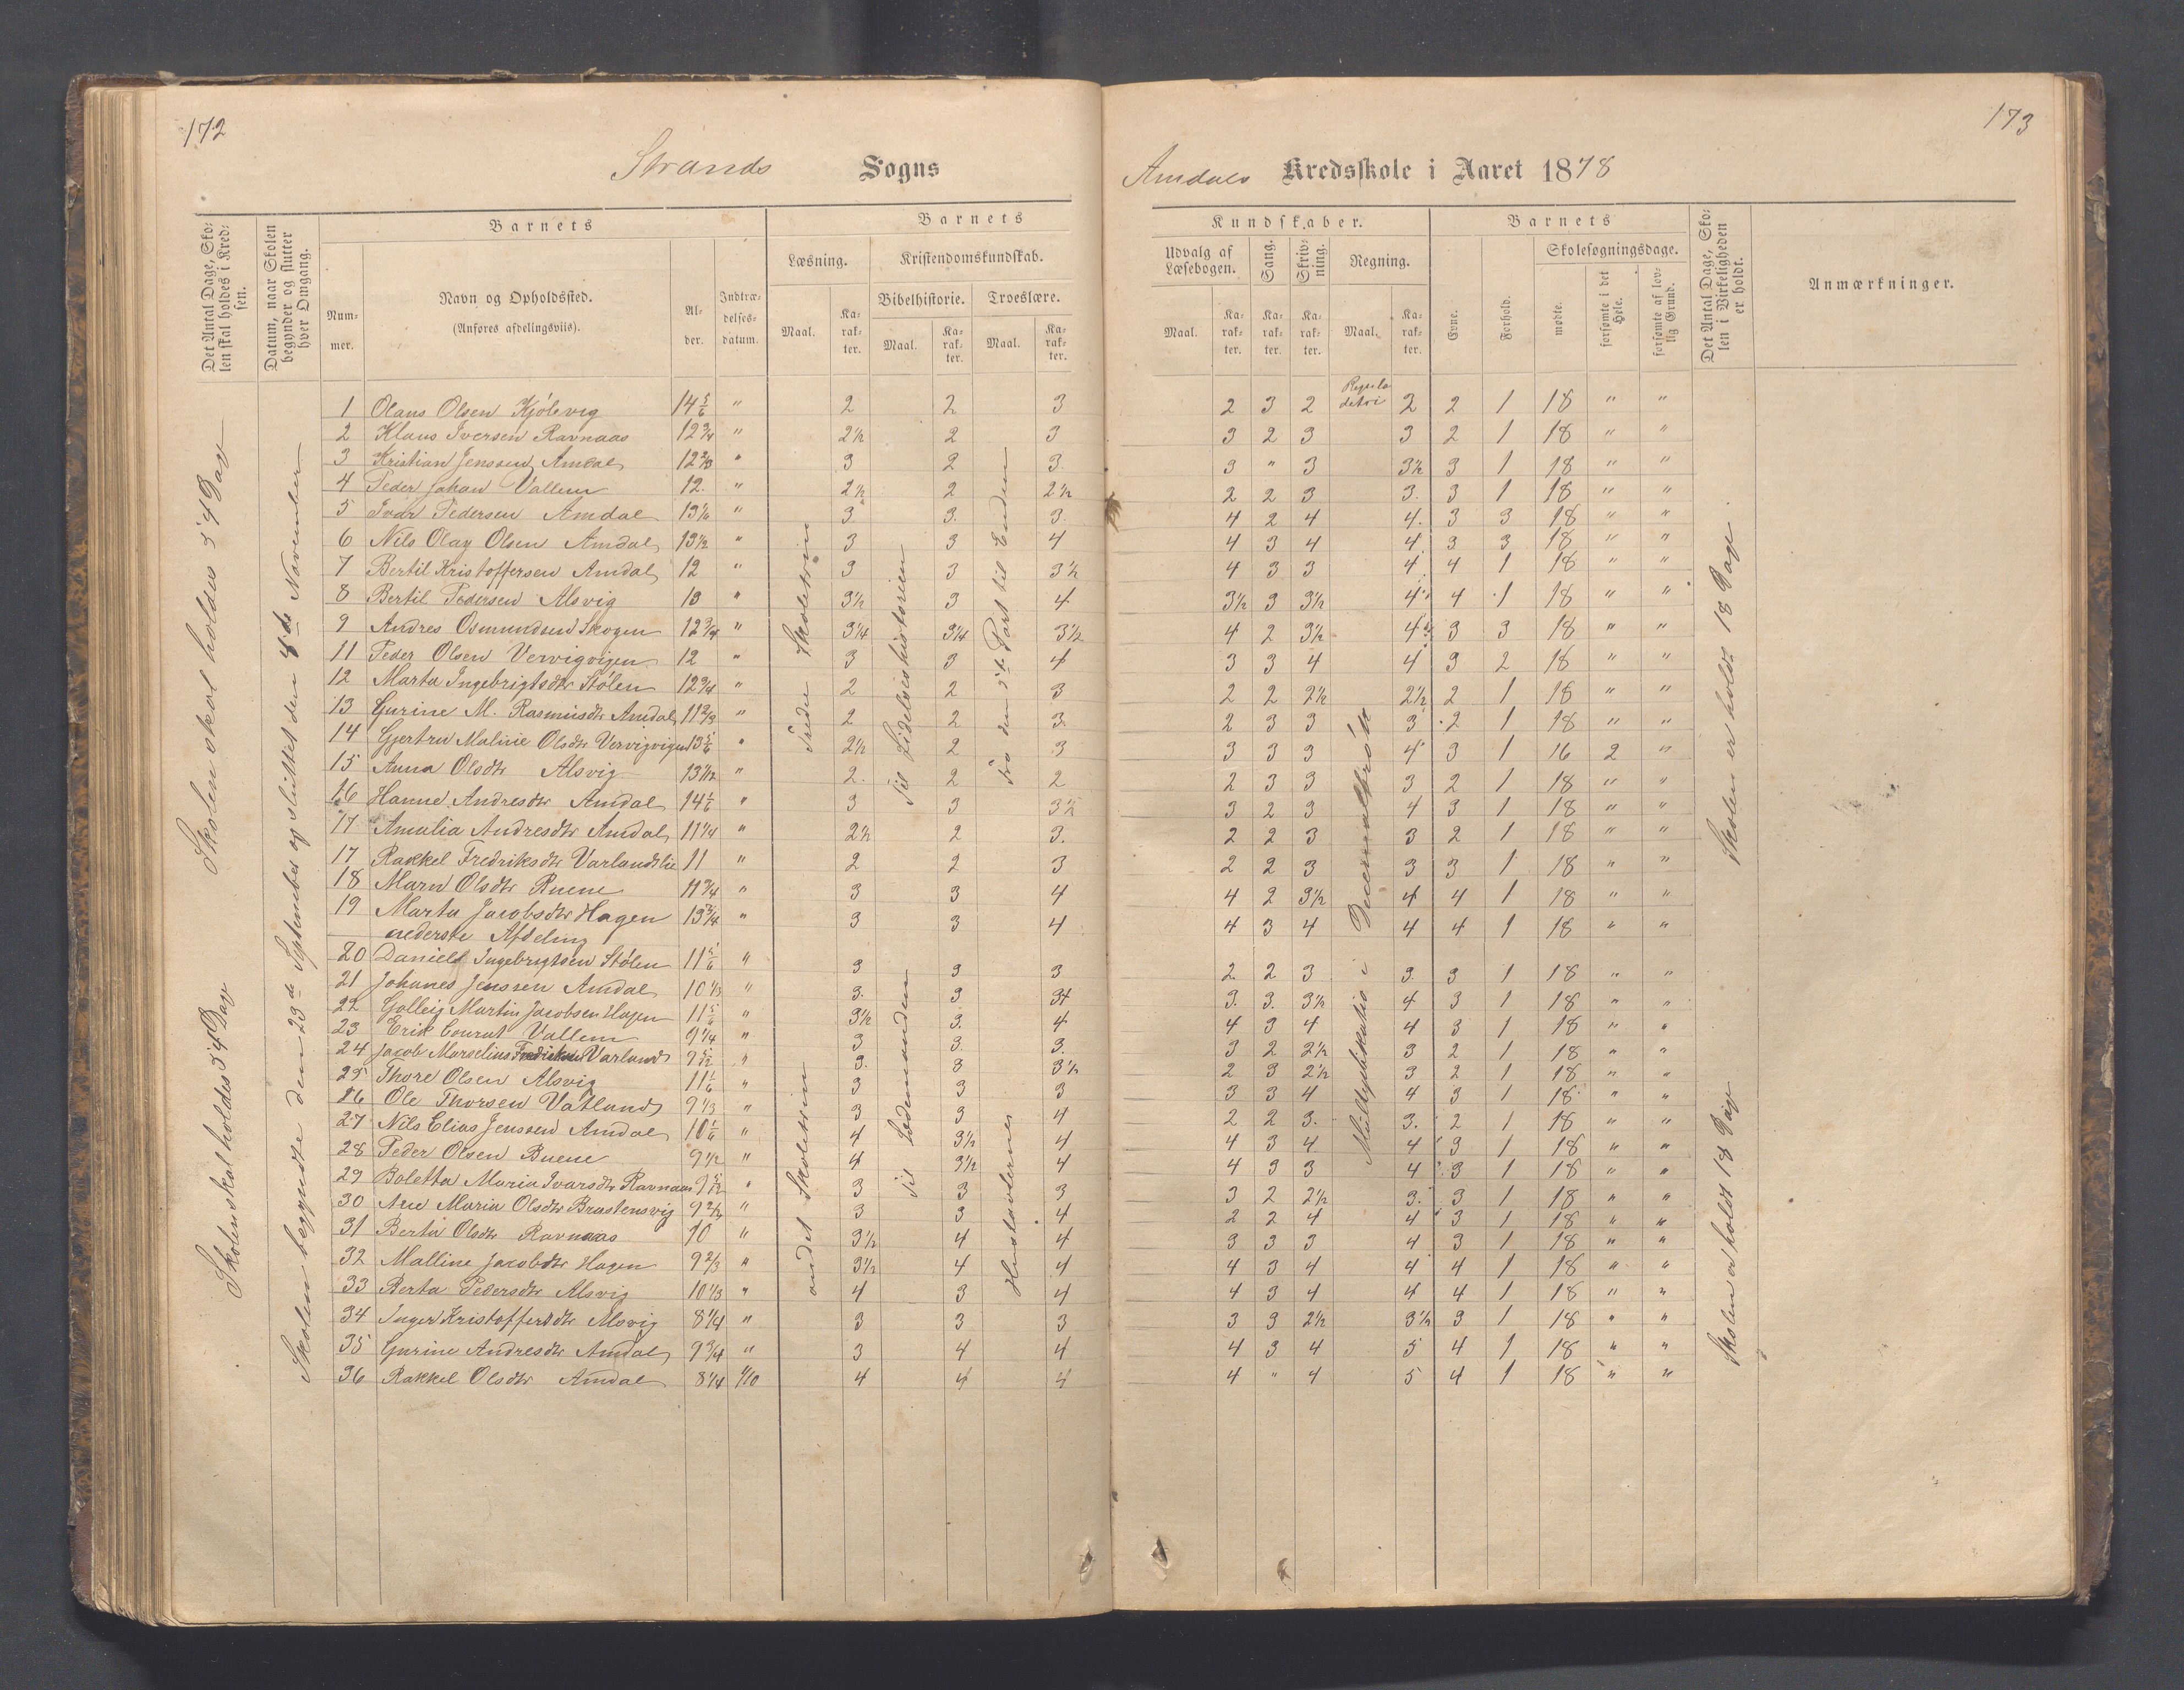 172
173
Strands Sogns
Amdals Kredsskole i Aaret 1878
Det Antal Dage, Skolen skal holdes i Kredsen.
Datum, naar Skolen begynder og slutter hver Omgang.
Barnets
Nummer.
Navn og Opholdssted.
(Anføres afdelingsviis).
Alder.
Indtrædelsesdatum.
Barnets
Læsning.
Kristendomskundskab.
Bibelhistorie.
Troeslære.
Maal.
Karakter.
Maal.
Karakter.
Maal.
Karakter.
Kundskaber.
Udvalg af Læsebogen.
Sang.
Skrivning.
Regning.
Maal.
Karakter.
Karakter.
Karakter.
Maal.
Karakter.
Barnets
Evne.
Forhold.
Skolesøgningsdage.
mødte.
forsømte i det Hele.
forsømte af lovlig Grund.
Det Antal Dage, Skolen i Virkeligheden er holdt.
Anmærkninger.
Skolen skal holdes 54 Dage
Skolen skal holdes 54 Dage
Skolen begyndte den 23de September og sluttet den 8de November
Tredie Skoletrin
andet Skoletrin
Til Lidelseshistorien
Til
Fra den 2den Part til Enden
Hustavlerne
Regula detri
Multyplikatio i
Skolen er holdt 18 Dage.
Skolen er holdt 18 Dage
1 Olaus Olsen Kjölevig 14 5/6 " 2 2 3 2 3 2 2 2 1 18 " "
2 Klaus Iversen Ravnaas 12 3/4 " 2½ 2 3 3 2 3 3 2 1 18 " "
3 Kristian Jenssen Amdal 12 2/3 " 3 2 3 3 " 3 3½ 3 1 18 " "
4 Peder Johan Vallem 12. " 2½ 2 2½ 2 2 3 3. 3 1 18 " "
5 Ivar Pedersen Amdal 13 1/6 " 3 3. 3. 4 2 4 4. 3 3 18 " "
6 Nils Olay Olsen Amdal 13½ " 3 3 4 4 3 4 4 3 3 18 " "
7 Bertil Kristoffersen Amdal 12 " 3 3 3½ 4 3 3 4 4 1 18 " "
8 Bertil Pedersen Alsvig 13 " 3½ 3 4 3½ 3 3½ 4 4 1 18 " "
9 Andres Osmundsen Skogen 12 3/4 " 3¼ 3¼ 3½ 4 2 3½ 4 3 3 18 " "
11 Peder Olsen Vervigvigen 12 " 3 3 4 3 3 4 4 3 2 18 " "
12 Marta Ingebrigtsdtr Stölen 12 3/4 " 2 2 3 2 2 2½ 2½ 2 1 18 " "
13 Gurine M. Rasmusdtr Amdal 11 2/3 " 2 2 3. 2 3 3 3 2 1 18 " "
14 Gjertru Maline Olsdtr Vervigvigen 13 5/6 " 2½ 2 3 3 3 3 4 3 1 16 2 "
15 Anna Olsdtr Alsvig 13 1/12 " 2. 2 2 2 3 3 3 2 1 18 " "
16 Hanne Andresdtr Amdal 14 1/6 " 3 3 3½ 3 2 3 4 3 1 18 " "
17 Amalia Andresdtr Amdal 11¼ " 2½ 2 3. 2 2 3 3 2 1 18 " "
17 Rakkel Fredriksdtr Varlandslie 11 " 2 2 3 2 2 3 3 3 1 18 " "
18 Marn Olsdtr Buene 11 3/4 " 3 3 4 4 2 3½ 4 4 1 18 " "
19 Marta Jacobsdtr Hagen 13 3/4 " 3 3 4 4 3 4 4 4 1 18 " "
nederste Afdeling
20 Daniel Ingebrigtsen Stölen 11 5/6 " 3 3 3 2 2 3 3 3 1 18 " "
21 Johanes Jenssen Amdal 10 1/3 " 3. 3 3+ 3. 3. 3½ 4 3 1 18 " "
22 Martin Jacobsen Hagen 11 5/6 " 3½ 3. 4 4 3 4 4 3 1 18 " "
23 Erik Conrat Vallem 9¼ " 3 3. 3. 3 2 2½ 3 2 1 18 " "
24 Jacob Marselius Fredriksen Varland 9 5/12 " 3. 3 3½ 2 3 2½ 3 2 1 18 " "
25 Thore Olsen Alsvig 11 1/6 " 3 3 3 3 3 4 4 3 1 18 " "
26 Ole Thorsen Vatland 9 1/3 " 3 3 4 2 2 3. 3. 2 1 18 " "
27 Nils Elias Jenssen Amdal 10 1/6 " 4 3½ 4 4 3 4 4 3 1 18 " "
28 Peder Olsen Buene 9½ " 4 3½ 4 4 3 3 4 3 1 18 " "
29 Boletta Maria Ivarsdtr Ravnaas 9 5/12 " 3 3 3 3 2 2½ 3. 3 1 18 " "
30 Ane Maria Olsdtr Brastensvig 9 2/3 " 3 3 4 2 2 4 4 3 1 18 " "
31 Berta Olsdtr Ravnaas 10 " 3½ 4 4 3 3 3 4 3 1 18 " "
32 Malline Jacobdtr Hagen 9 2/3 " 3½ 4 4 4 3 4 4 4 1 18 " "
33 Berta Pedersdtr Alsvig 10 1/3 " 4 3 4 4 3 4 4 4 1 18 " "
34 Inger Kristoffersdtr Alsvig 8¼ " 3 3 3 3 3 2½ 3½ 3 1 18 " "
35 Gurine Andresdtr Amdal 9 3/4 " 3 4 4 4 3 4 5 4 1 18 " "
36 Rakkel Olsdtr Amdal 8¼ 1/10 4 4 4 4 " 4 5 4 1 18 " "